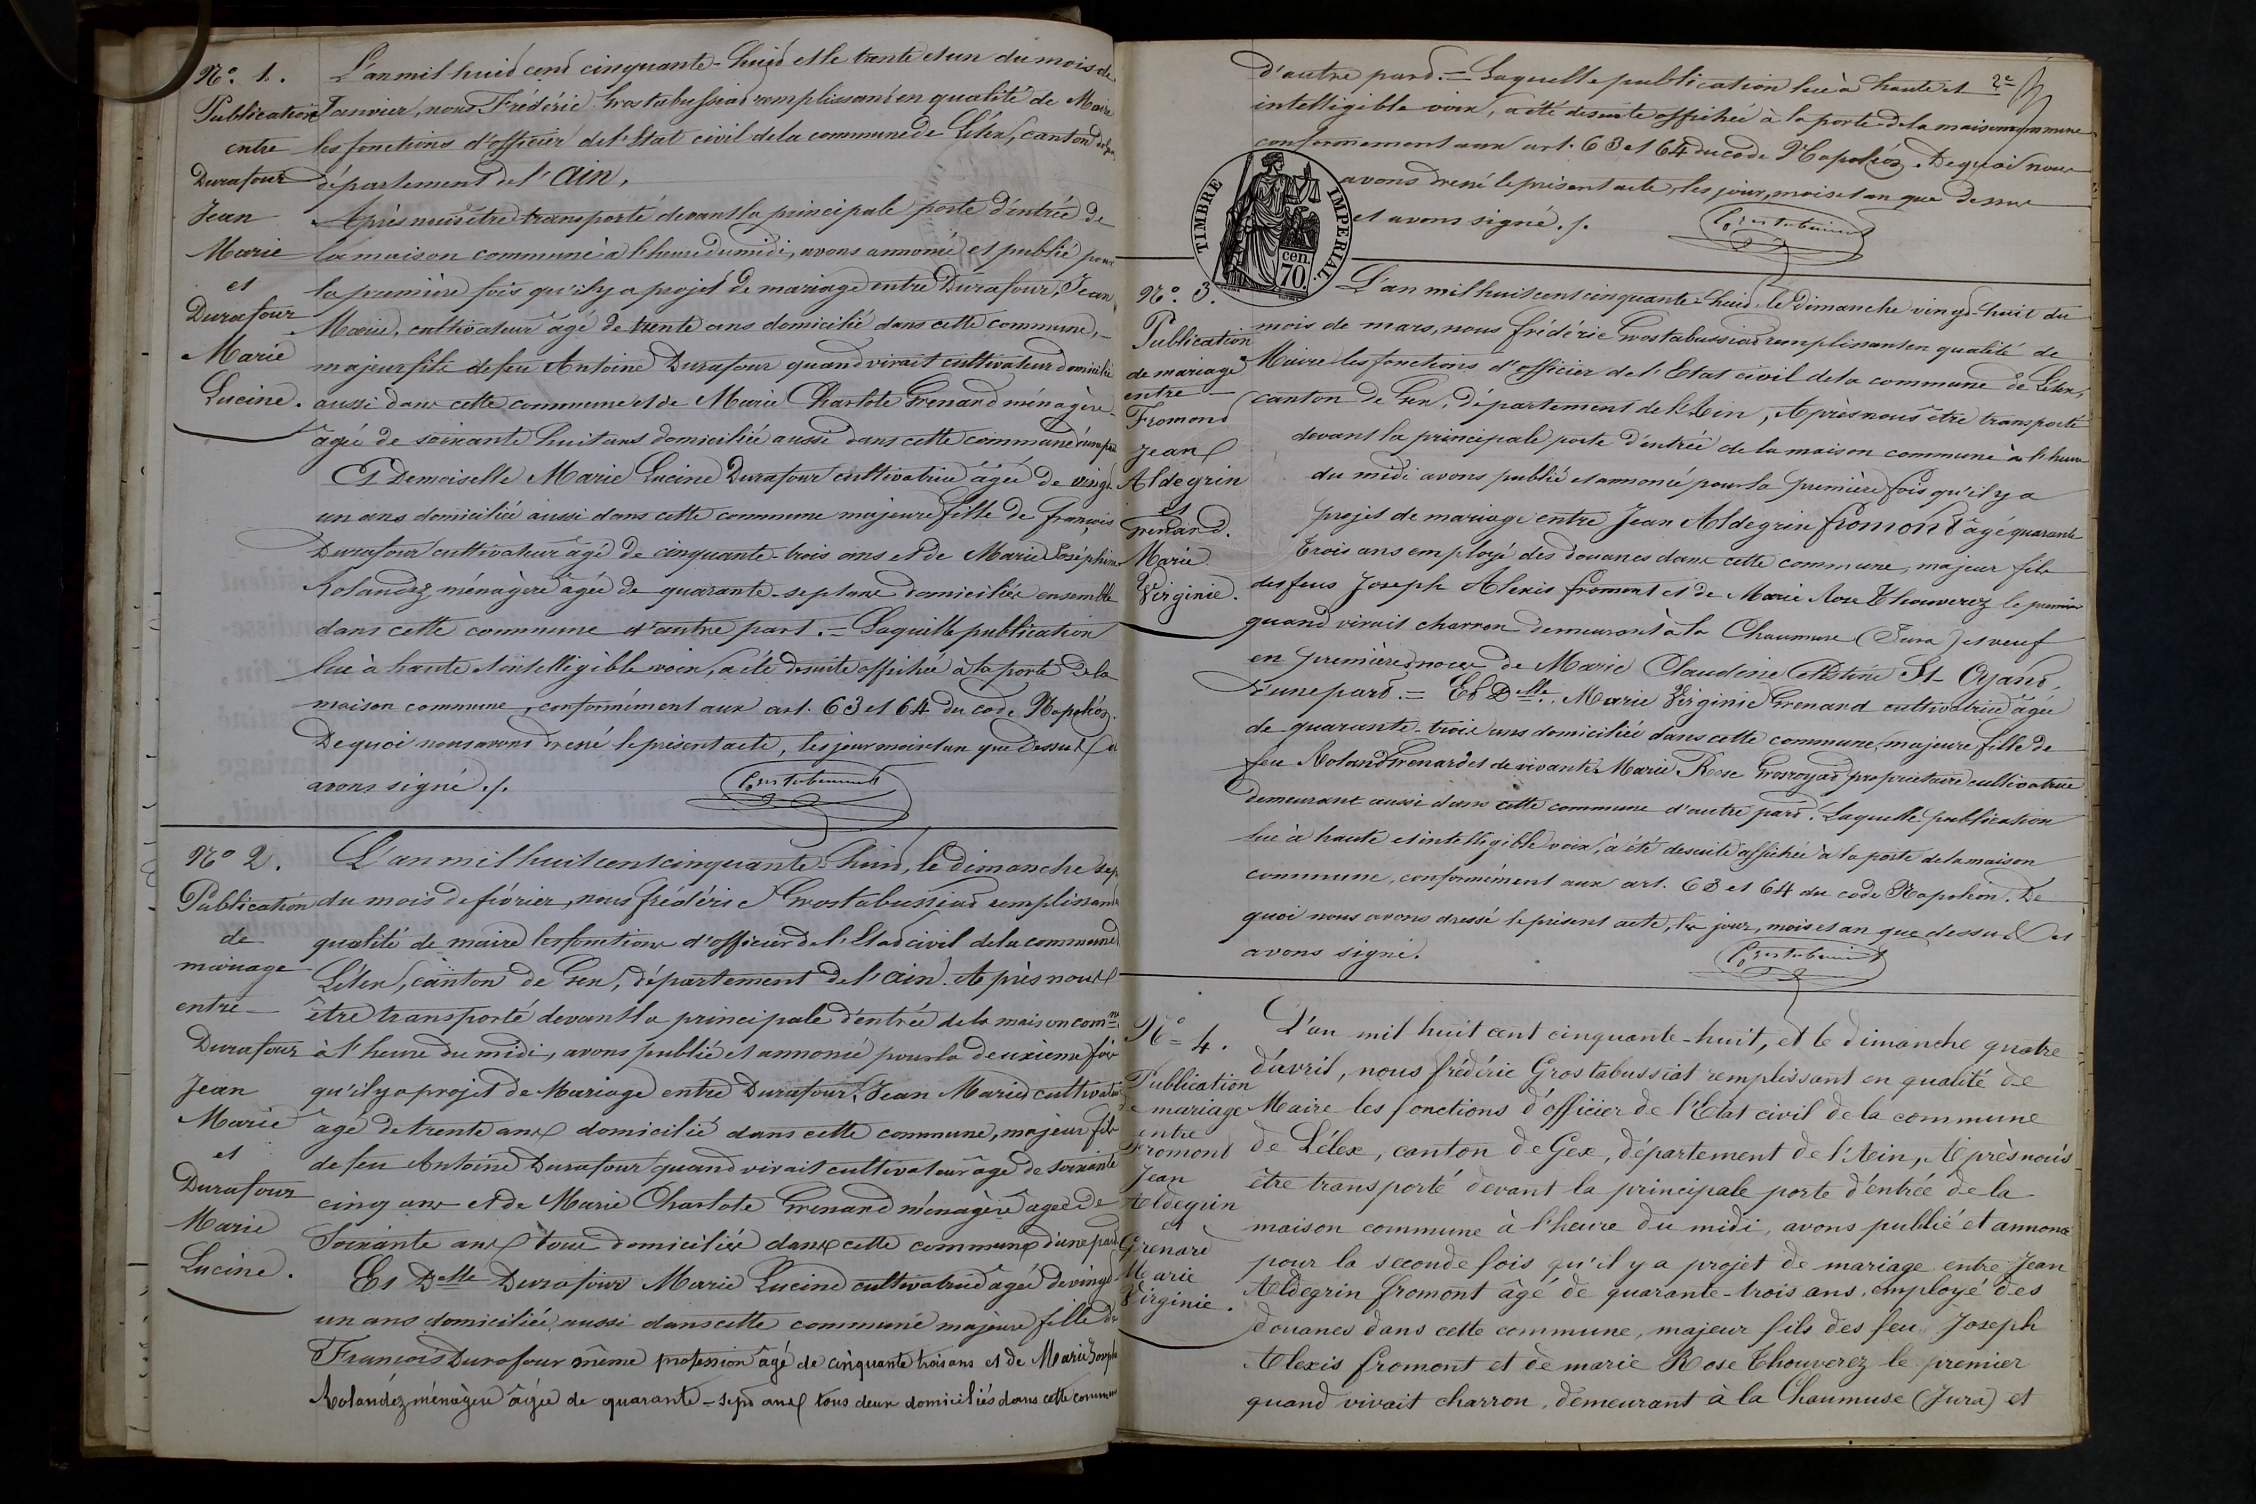 N.º 1.
Publication
entre
Durafour
Jean
Marie
et
Durafour
Marie
Lucine.
L'an mil huit cent cinquante-huit et le trente et un du mois de
Janvier, nous Frédéric Grostabussiat remplissant en qualité de Maire
les fonctions d'officier de l'Etat civil de la commune de Lélex, canton de Gex,
département de l'Ain,
Après nous être transporté devant la principale porte d'entrée de
la maison commune à l'heure du midi, avons annoncé et publié pour
la première fois qu'il y a projet de mariage entre Durafour, Jean
Marie, cultivateur âgé de trente ans domicilié dans cette commune,
majeur fils de feu Antoine Durafour quand vivait cultivateur domicilié
aussi dans cette commune et de Marie Charlote Grenard ménagère
âgée de soixante huit ans domiciliée aussi dans cette commune d'une part
Et Demoiselle Marie Lucine Durafour cultivatrice âgée de vingt
un ans domiciliée aussi dans cette commune majeure fille de françois
Durafour cultivateur âgé de cinquante-trois ans et de Marie Joséphine
Rolandez ménagère âgée de quarante-sept ans domiciliés ensemble
dans cette commune d'autre part. = Laquelle publication
lue à haute et intelligible voix, a été desuite affichée à la porte de la
maison commune, conformément aux art. 63 et 64 du code Napoléon.
De quoi nous avons dressé le présent acte, les jour mois et an que dessus et
avons signé ./.
Grostabussiat
N.º 2.
Publication
de
mariage
entre
Durafour
Jean
Marie
et
Durafour
Marie
Lucine.
L'an mil huit cent cinquante-huit, le dimanche sept
du mois de février, nous frédéric Grostabussiat remplissant en
qualité de maire les fonctions d'officier de l'Etat civil de la commune de
Lélex, canton de Gex, département de l'Ain. Après nous
être transporté devant la principale d'entrée de la maison comm.ne
à l'heure du midi, avons publié et annoncé pour la deuxième fois
qu'il y a projet de Mariage entre Durafour, Jean Marie cultivateur
âgé de trente ans domicilié dans cette commune, majeur fils
de feu Antoine Durafour quand vivait cultivateur âgé de soixante
cinq ans et de Marie Charlote Grenard ménagère agée de
soixante ans tous domiciliés dans cette commune d'une part
Et Delle Durafour Marie Lucine cultivatrice âgée de vingt
un ans domiciliée aussi dans cette commune majeure fille de
François Durafour même profession âgé de cinquante trois ans et de Marie Josephe
Rolandez ménagère âgée de quarante-sept ans tous deux domiciliés dans cette commune
2e
d'autre part. = Laquelle publication lue à haute et
intelligible voix, a été desuite affichée à la porte de la maison commune
conformément aux art. 63 et 64 du code Napoléon. De quoi nous
avons dressé le présent acte, les jour, mois et an que dessus
et avons signé ./.
Grostabussiat
TIMBRE IMPERIAL.
cen.
70.
N.º 3.
Publication
de mariage
entre
Fromond
Jean
Aldegrin
et
Grenard.
Marie
Virginie.
L'an mil huit cent cinquante-huit, le Dimanche vingt-huit du
mois de mars, nous frédéric Grostabussiat remplissant en qualité de
Maire les fonctions d'officier de l'Etat civil de la commune de Lélex,
canton de Gex, département de l'Ain, Après nous être transporté
devant la principale porte d'entrée de la maison commune à l'heure
du midi avons publié et annoncé pour la première fois qu'il y a
projet de mariage entre Jean Aldegrin fromont âgé quarante
trois ans employé des douanes dans cette commune, majeur fils
des feus Joseph Alexis fromont et de Marie Rose Thouverez le premier
quand vivait charron demeurant à la Chaumuse (Jura) et veuf
en premières noces de Marie Claudine Célestine St- Oyant
d'une part. = Et Delle Marie Virginie Grenard cultivatrice âgée
de quarante-trois ans domiciliée dans cette commune, majeure fille de
feu Roland Grenard et de vivante Marie Rose Grosroyat propriétaire cultivatrice
demeurant aussi dans cette commune d'autre part. Laquelle publication
lue à haute et intelligible voix, a été desuite affichée à la porte de la maison
commune, conformément aux art. 63 et 64 du code Napoléon. De
quoi nous avons dressé le présent acte, les jour, mois et an que dessus et
avons signé.
Grostabussiat
N.º 4.
Publication
de mariage
entre
Fromont
Jean
Aldegrin
et
Grenard
Marie
Virginie.
L'an mil huit cent cinquante-huit, et le dimanche quatre
d'avril, nous frédéric Grostabussiat remplissant en qualité de
Maire les fonctions d'officier de l'Etat civil de la commune
de Lélex, canton de Gex, département de l'Ain, Après nous
être transporté devant la principale porte d'entrée de la
maison commune à l'heure du midi, avons publié et annoncé
pour la seconde fois qu'il y a projet de mariage entre Jean
Aldegrin fromont âgé de quarante-trois ans, employé des
douanes dans cette commune, majeur fils des feu Joseph
Alexis fromont et de marie Rose Thouverez le premier
quand vivait charron, demeurant à la Chaumuse (Jura) et